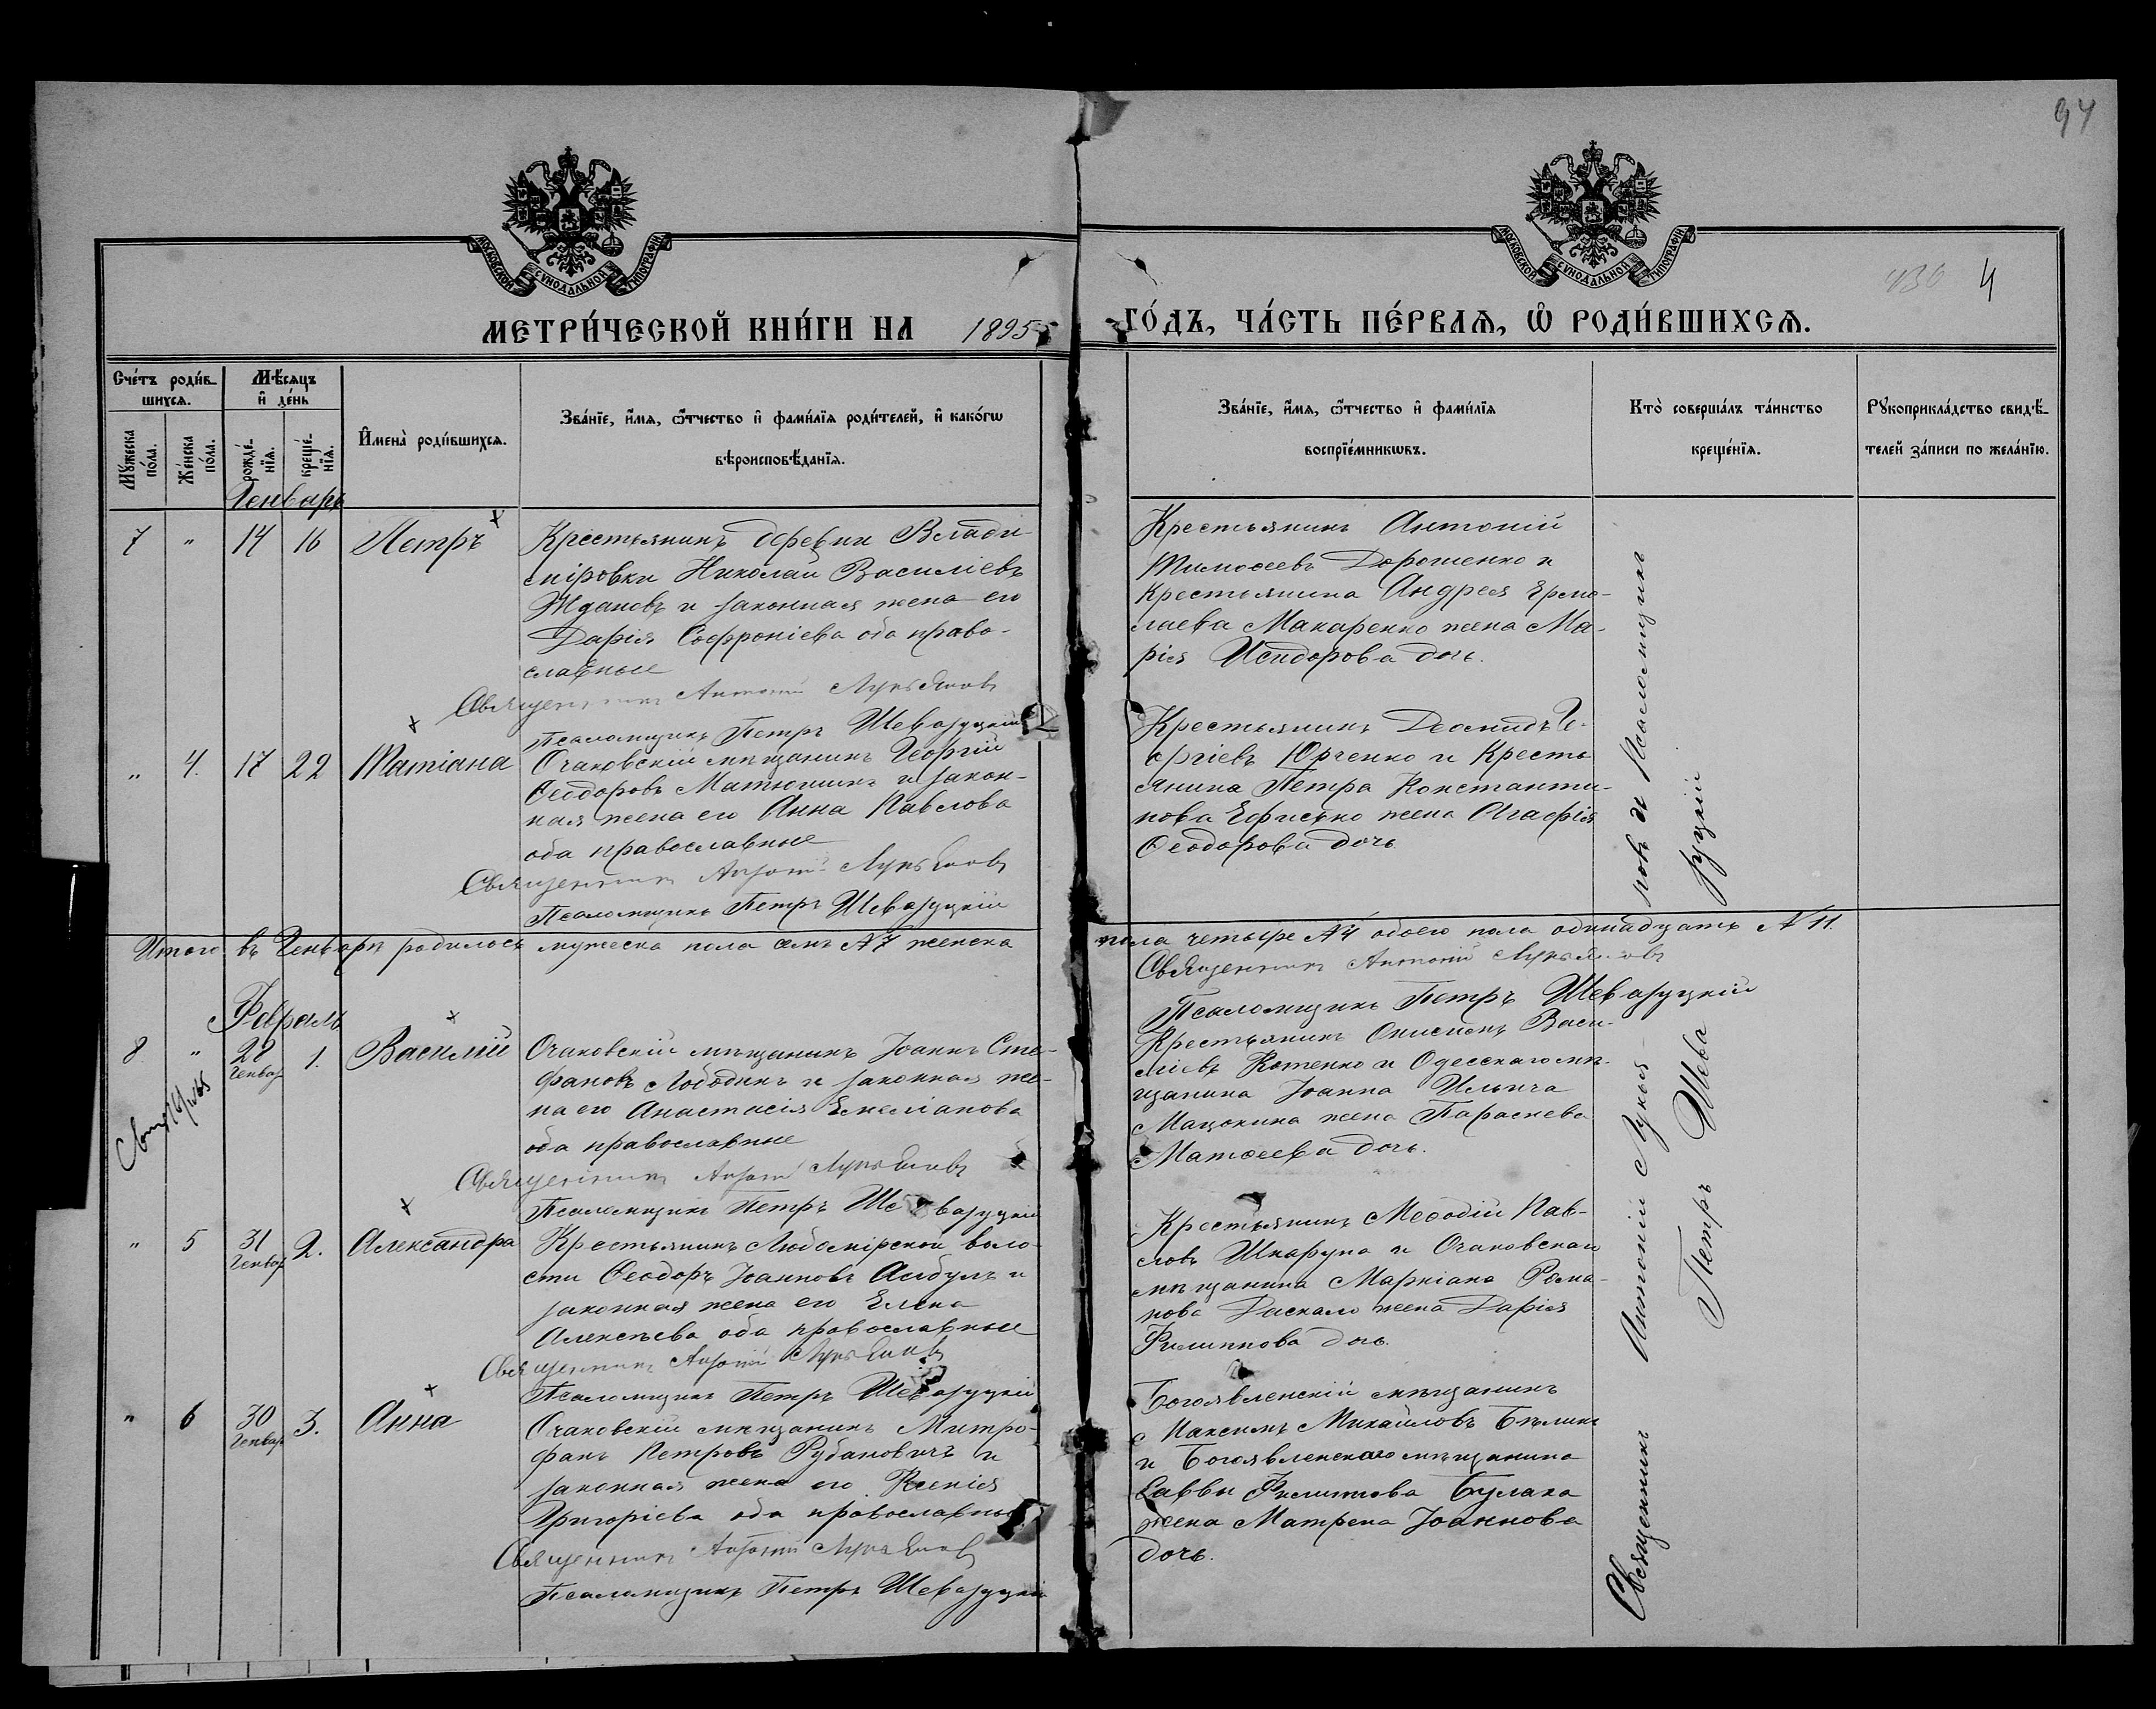 94
МОСКОВСКОЙ СѴНОДАЛЬНОЙ ТИПОГРАФІИ
МОСКОВСКОЙ СѴНОДАЛЬНОЙ ТИПОГРАФІИ
430 4
МЕТРИ́ЧЕСКОЙ КНИ́ГИ НА 1895
ГО́ДЪ, ЧА́СТЬ ПЕ́РВАѦ, Ѽ РОДИ́ВШИХСѦ.
Сче́тъ роди́в-
шихсѧ.
Мѣсяцъ
и҆ де́нь
Мꙋ́жеска
по́ла.
Же́нска
по́ла.
рожде́-
нїѧ.
креще́-
нїѧ.
И҆мена̀ роди́вшихсѧ.
Зва́нїе, и҆́мѧ, ѻ҆́тчество и҆ фами́лїѧ роди́телей, и҆ како́гѡ
вѣроисповѣ́данїѧ.
Зва́нїе, и҆́мѧ, ѻ҆́тчество и҆ фами́лїѧ
воспрїе́мникѡвъ.
Кто̀ соверша́лъ та́инство
креще́нїѧ.
Рꙋкоприкла́дство свидѣ́-
телей за́писи по жела́нїю.
Генварь
7 " 14 16 Петръ
Крестьянинъ деревни Влади-
міровки Николай Василіевъ
Ждановъ и законная жена его
Дарія Софроніева оба право-
славные
Священникъ Антоній Лукьяновъ
Псаломщикъ Петръ Шевазуцкій
Крестьянинъ Антоній
Тимоѳеевъ Дорошенко и
крестьянина Андрея Ермо-
лаева Макаренко жена Ма-
рія Исидорова дочь.
" 4. 17 22 Татіана
Очаковскій мѣщанинъ Георгій
Ѳеодоровъ Матюшинъ и закон-
ная жена его Анна Павлова
оба православные
Священникъ Антоній Лукьяновъ
Псаломщикъ Петръ Шевазуцкій
Крестьянинъ Деомидъ Ге-
оргіевъ Юрченко и Кресть
янина Петра Константи-
нова Ефименко жена Агафія
Ѳеодорова дочь
Итого въ Генварѣ родилось мужеска пола семь №7 женска
пола четыре №4 обоего пола одинадцать №11.
Священникъ Антоній Лукьяновъ
Псаломщикъ Петръ Шевазуцкій
Февраль
8 " 28 Генвар 1. Василій
Очаковскій мѣщанинъ Іоаннъ Сте-
фановъ Лободинъ и законная же-
на его Анастасія Емеліанова
оба православные
Священникъ Антоній Лукьяновъ
Псаломщикъ Петръ Шевазуцкій
Крестьянинъ Онисимъ Васи-
ліевъ Котенко и Одесскаго мѣ-
щанина Іоанна Ильича
Мацокина жена Параскева
Матѳеева дочь.
" 5 31 Генвар 2. Александра
Крестьянинъ Любомірской воло-
сти Ѳеодоръ Іоанновъ и
законная жена его Елена
Алексѣева оба православные
Священникъ Антоній Лукьяновъ
Псаломщикъ Петръ Шевазуцкій
Крестьянинъ Меѳодій Пав-
ловъ Шкарупа и Очаковскаго
мѣщанина Маркіана Рома-
нова Даскало жена Дарія
Филиппова дочь.
" 6 30 Генвар 3. Анна
Очаковскій мѣщанинъ Митро-
фанъ Петровъ Рубановичъ и
законная жена его Ксенія
Григоріева оба православные
Священникъ Антоній Лукьяновъ
Псаломщикъ Петръ Шевазуцкій
Богоявленскій мѣщанинъ
Максимъ Михайловъ Бѣликъ
и Богоявленскаго мѣщанина
Саввы Филиппова Булаха
жена Матрена Іоаннова
дочь.
Священникъ Антоній Лукья-
новъ и Псаломщикъ
Петръ Шева-
зуцкій